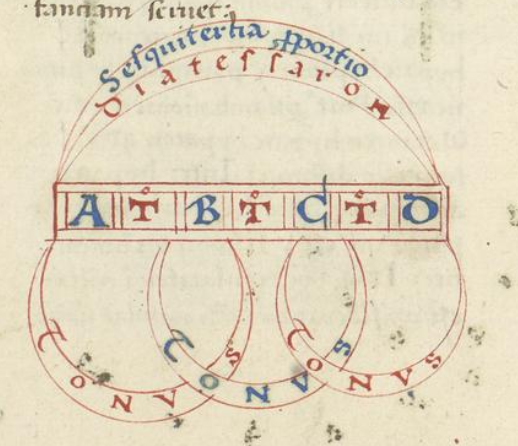 stanciam seruet:
Sesquitertia proportio
Diatessaron
A T B T C T D
TONVS TONVS TONVS